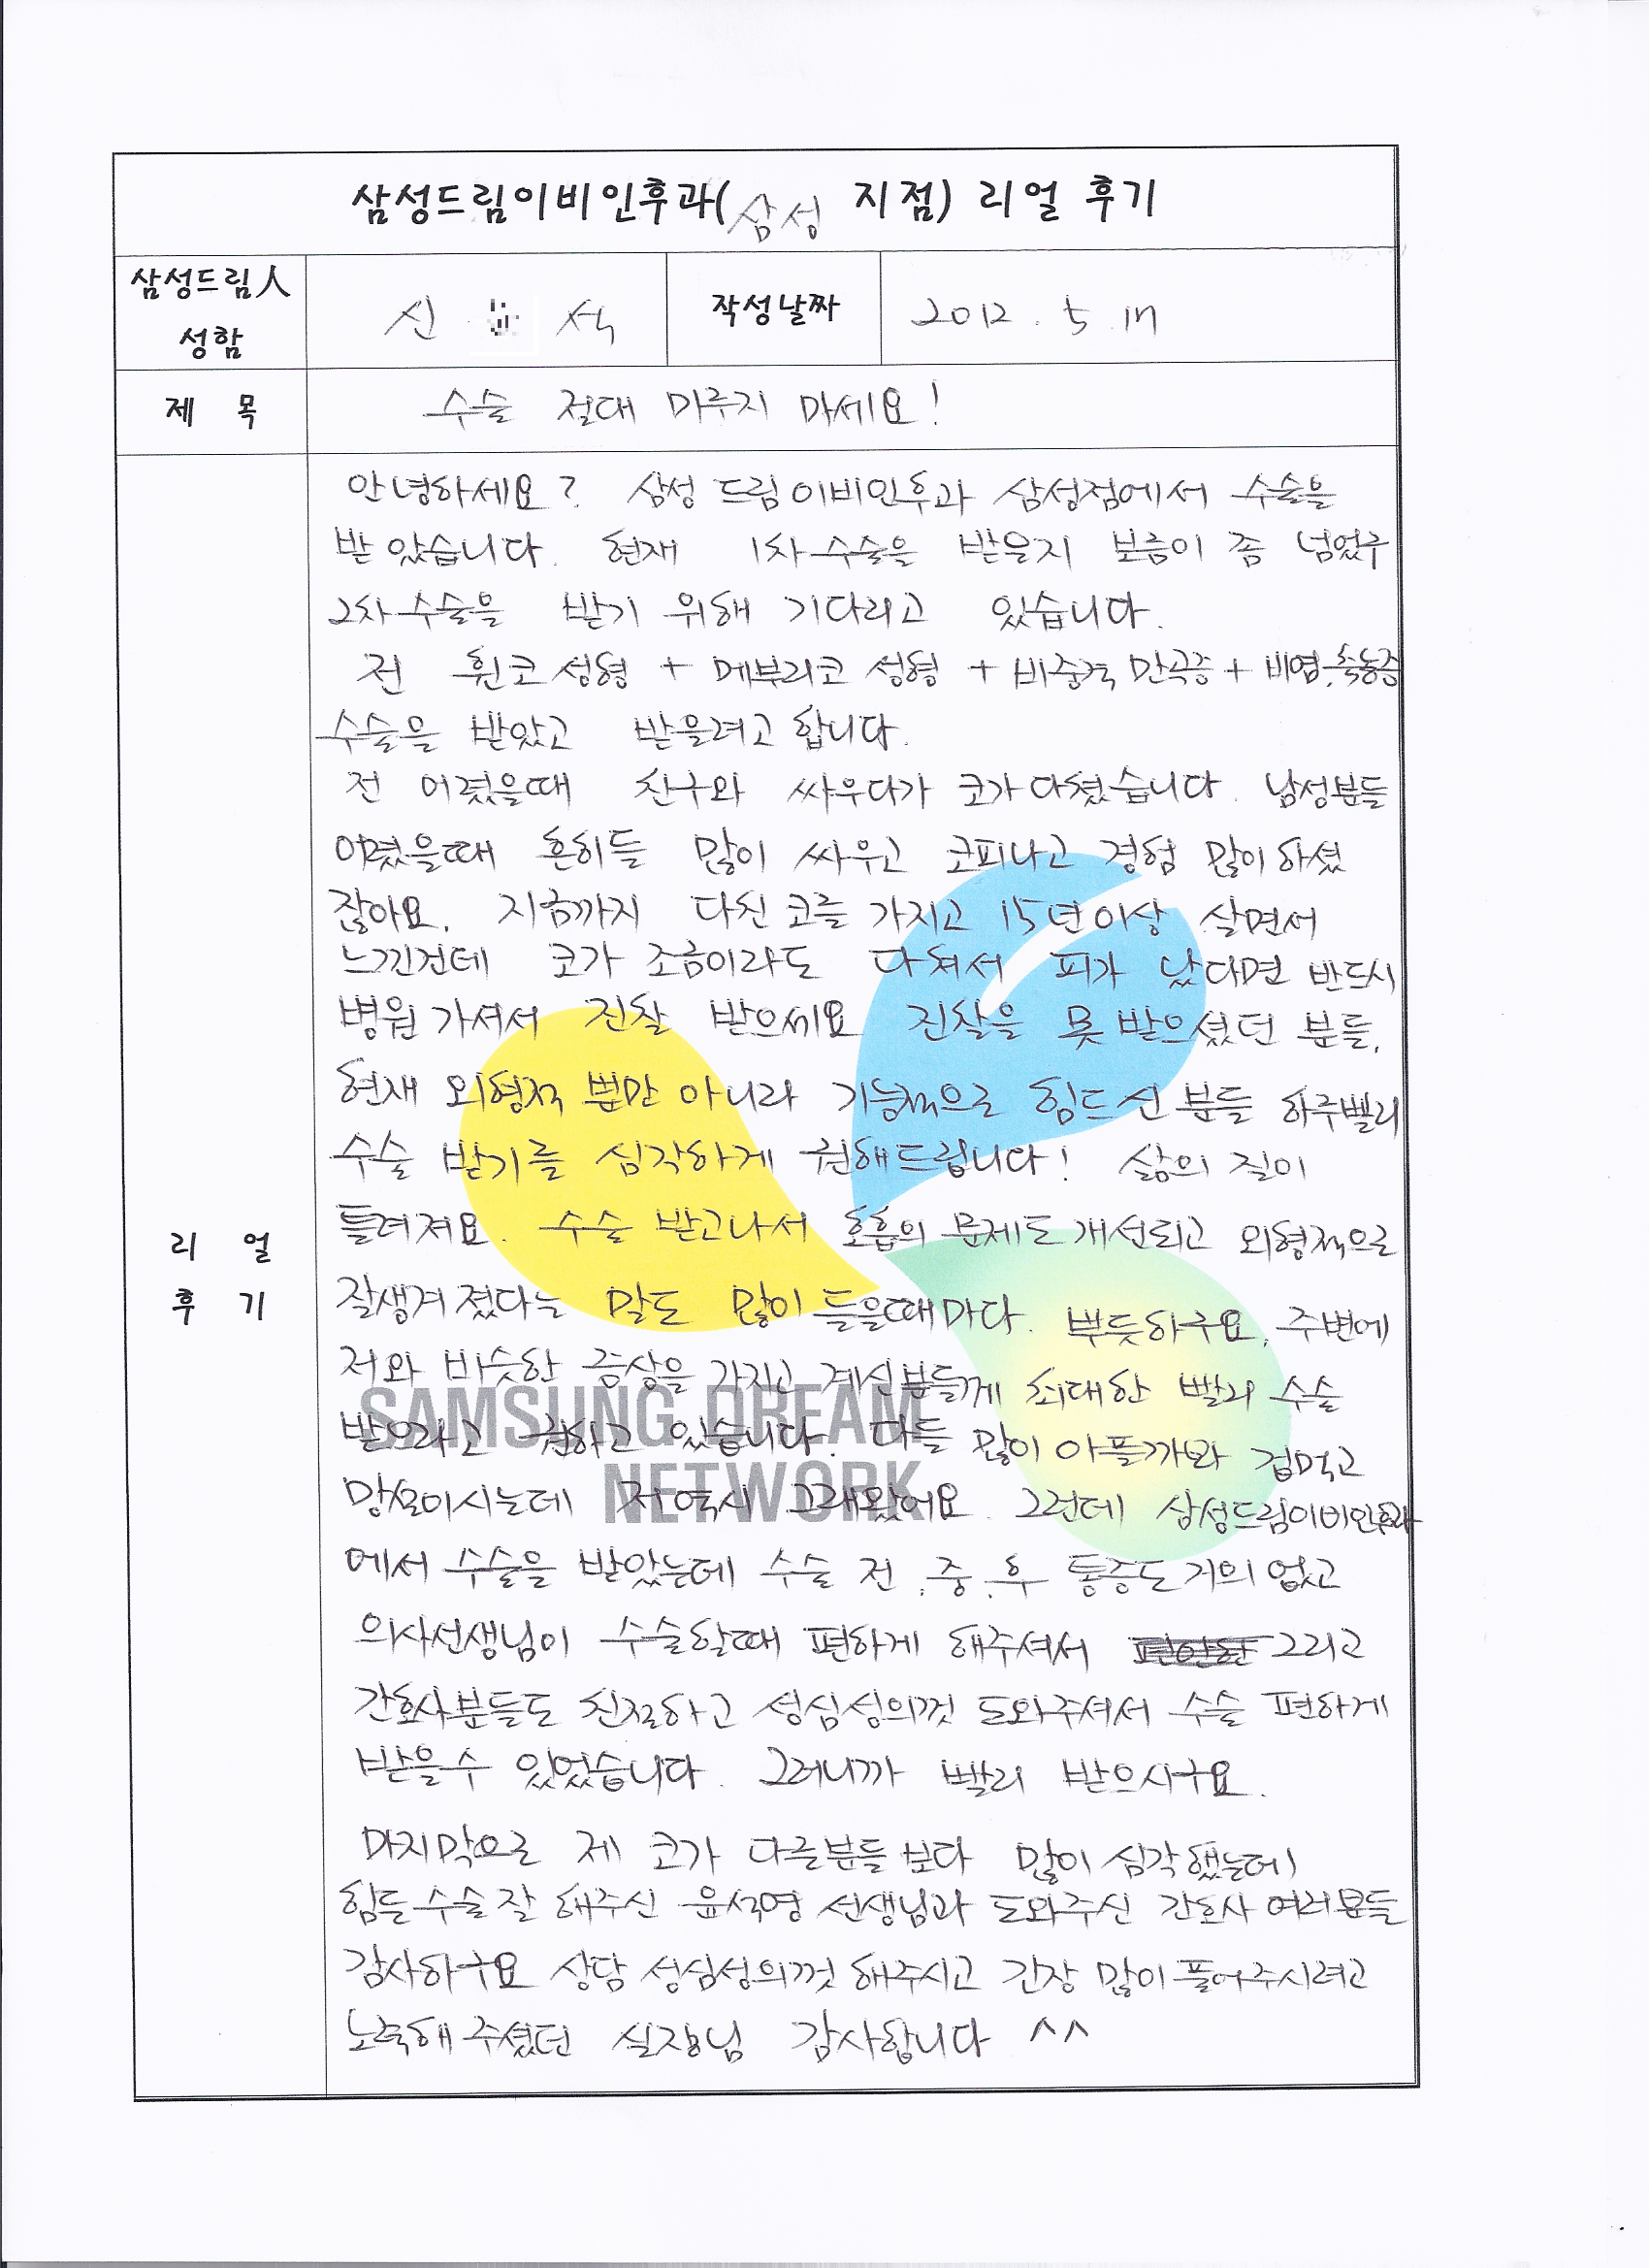 삼성드림이비인후과(삼성 지점) 리얼 후기
삼성드림人 성함
신 석
작성날짜
2012. 5. 17
제 목
수술 절대 미루지 마세요!
리 얼 후 기
안녕하세요? 삼성 드림 이비인후과 삼성점에서 수술을
받았습니다. 현재 1차 수술을 받을지 보름이 좀 넘었구
2차 수술을 받기 위해 기다리고 있습니다.
전 휜코 성형 + 메부리코 성형 + 비중격 만곡증 + 비염.축농증
수술을 받았고 받을려고 합니다.
전 어렸을때 친구와 싸우다가 코가 다쳤습니다. 남성분들
어렸을때 흔히들 많이 싸우고 코피나고 경험 많이 하셨
잖아요. 지금까지 다친 코를 가지고 15년 이상 살면서
느낀건데 코가 조금이라도 다쳐서 피가 났다면 반드시
병원 가셔서 진찰 받으세요 진찰을 못 받으셨던 분들,
현재 외형적 뿐만 아니라 기능적으로 힘드신 분들 하루빨리
수술 받기를 심각하게 권해드립니다! 삶의 질이
틀려져요. 수술 받고나서 호흡의 문제도 개선되고 외형적으로
잘생겨 졌다는 말도 많이 들을때마다. 뿌듯하구요. 주변에
저와 비슷한 증상을 가지고 계신분들께 최대한 빨리 수술
받으라고 권하고 있습니다. 다들 많이 아플까봐 겁먹고
망설이시는데 저 역시 그래왔어요. 그런데 삼성드림이비인후과
SAMSUNG DREAM
NETWORK
에서 수술을 받았는데 수술 전.중.후 통증도 거의 없고
의사선생님이 수술할때 편하게 해주셔서 그리고
간호사분들도 친절하고 성심성의껏 도와주셔서 수술 편하게
받을수 있었습니다. 그러니까 빨리 받으시구요.
마지막으로 제 코가 다른분들 보다 많이 심각했는데
힘든 수술 잘 해주신 윤석영 선생님과 도와주신 간호사 여러분들
감사하구요 상담 성심성의껏 해주시고 긴장 많이 풀어주시려고
노력해 주셨던 실장님 감사합니다 ^^